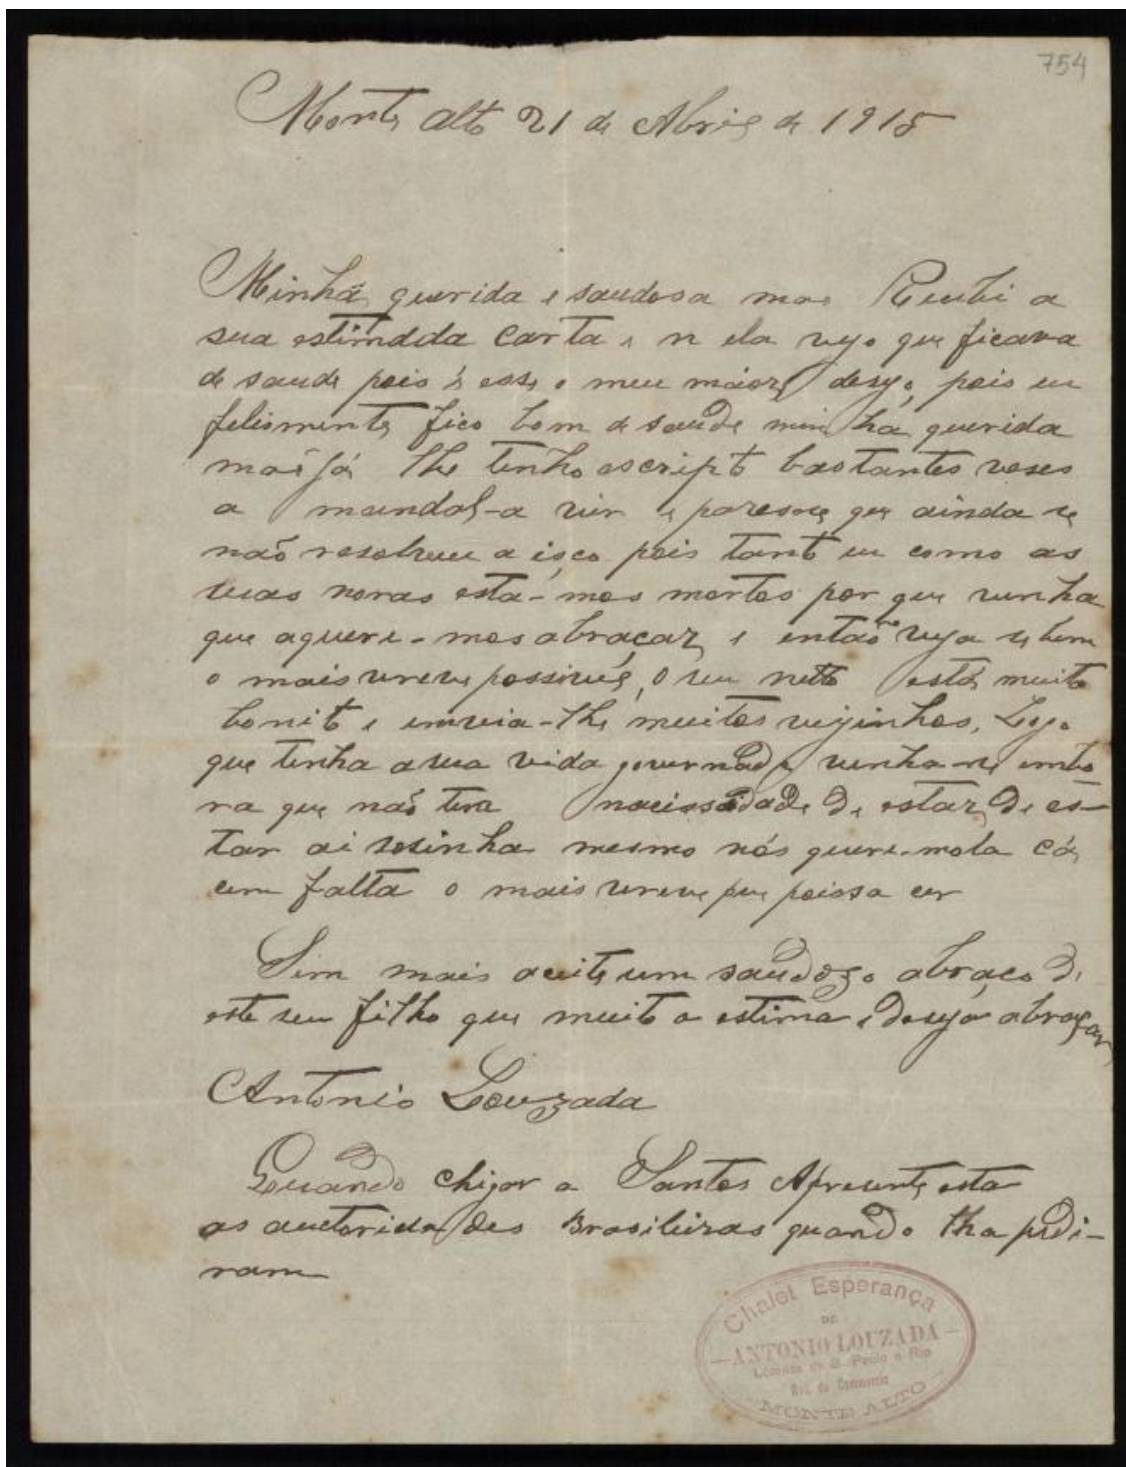 754
Monte alto 21 de Abril de 1915
Minhã querida e saudosa mae Recibi a
sua estimadda carta e n ela vejo que ficava
de saude pois é esse o meu maior desejo, pois eu
felismente fico bom de saude min ha querida
mãe já lhe tenho escripto bastantes veses
a mandal-a vir e paresse que ainda se
não resolveu a isço pois tanto eu como as
suas noras está-mos mortos por que venha
que aquere-mos abraçar, e então veja se vem
o mais vreve possivél, o seu netto está muito
bonito e emvia-lhe muitos vijinhos, Logo
que tenha a sua vida governada venha-se embo
ra que não tem nacissidade de estar de es-
tar ai sosinha mesmo nós quere-mola cá
cem falta o mais vreve que poissa cer
Sem mais aceite um saudozo abraço de
este seu filho que muito a estima e deseja abraçar
Antonio Louzada
Quando chigar a Santos Apresente esta
as auctorida des Brasileiras quando lha pidi-
ram
Chalet Esperança
DE
ANTONIO LOUZADA
Loterias de S. Paulo e Rio
Rua do Commercio
MONTE ALTO